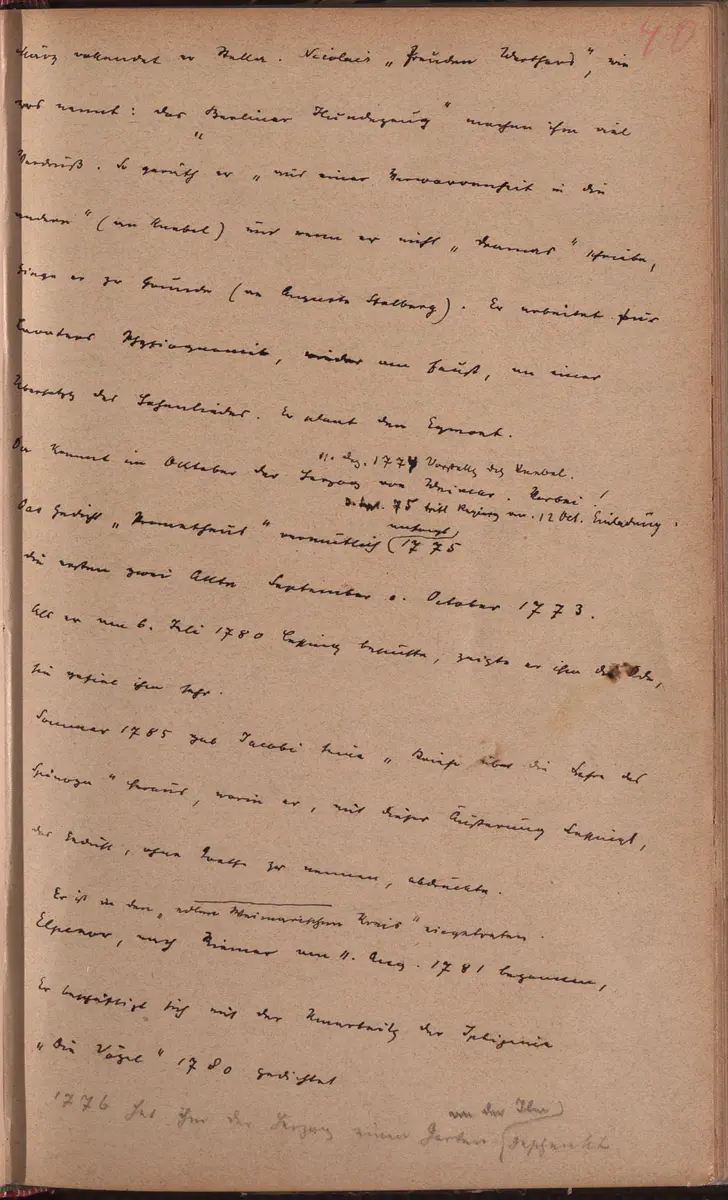 40
März vollendet er Stella. Nicolais „Freuden Werthers“, wie
er's nennt: das „Berliner Hundezeug“ machen ihm viel
Verdruß. So geräth er „aus einer Verworrenheit in die
andere“ (an Knebel) und wenn er nicht „Dramas“ schriebe,
ginge er zu Grunde (an Auguste Stolberg). Er arbeitet für
Lavaters Physiognomik, wieder am Faust, an einer
Übersetzg des Hohenliedes. Er plant den Egmont.
11. Dez. 1774 Vorstellg dch Knebel.
Da kommt im Oktober der Herzog von Weimar. Herbei!
75 tritt Regierg an. 12 Oct. Einladung.
Das Gedicht „Prometheus“ vermutlich (1775
die ersten zwei Akte September o. October 1773.
Als er am 6. Juli 1780 Lessing besuchte, zeigte er ihm die Ode,
sie gefiel ihm sehr.
Sommer 1785 gab Jacobi seine „Briefe über die Lehre des
Spinoza“ heraus, worin er, mit dieser Äußerung Lessings,
das Gedicht, ohne Goethe zu nennen, abdruckte.
Er ist in den „edlen Weimarischen Kreis“ eingetreten.
Elpenor, nach Riemer am 11. Aug. 1781 begonnen,
Er beschäftigt sich mit der Umarbeitg der Iphigenie
„Die Vögel“ 1780 gedichtet
an der Ilm
1776 hat ihm der Herzog einen Garten geschenkt